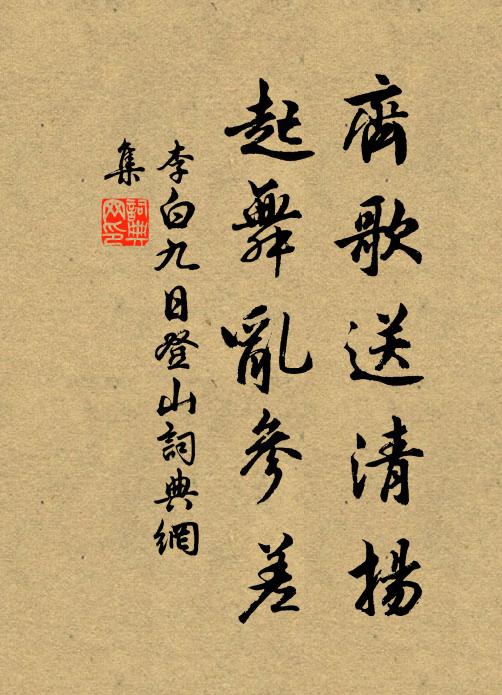 齊歌送清揚
起舞亂參差
李白九日登山詞典網
集
詞典
网印